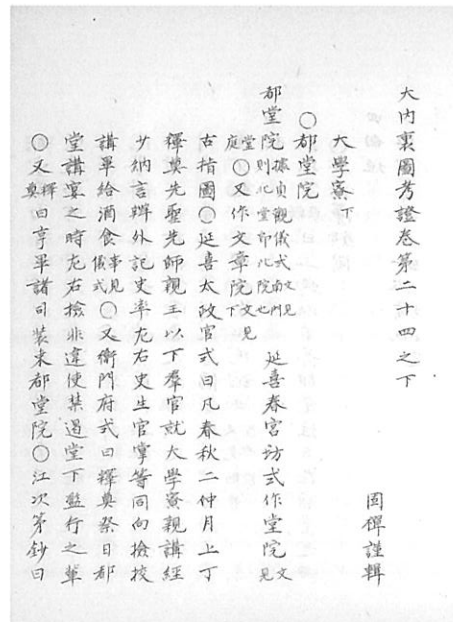 大内裏圖考證卷第二十四之下
固禪謹輯
大學寮下
○都堂院
都堂院據貞觀儀式文見南門則此堂即此院也 延喜春宮坊式作堂院文見
堂庭○又作文章院文見下
古指圖○延喜太政官式曰凡春秋二仲月上丁
釋奠先聖先師親王以下羣官就大學寮親講經
少納言辨外記史率左右史生官掌等同向檢校
講畢給酒食事見儀式○又衛門府式曰釋奠祭日都
堂講宴之時左右檢非違使禁遏堂下濫行之輩
○又釋奠曰享畢諸司裝束都堂院○江次第鈔曰